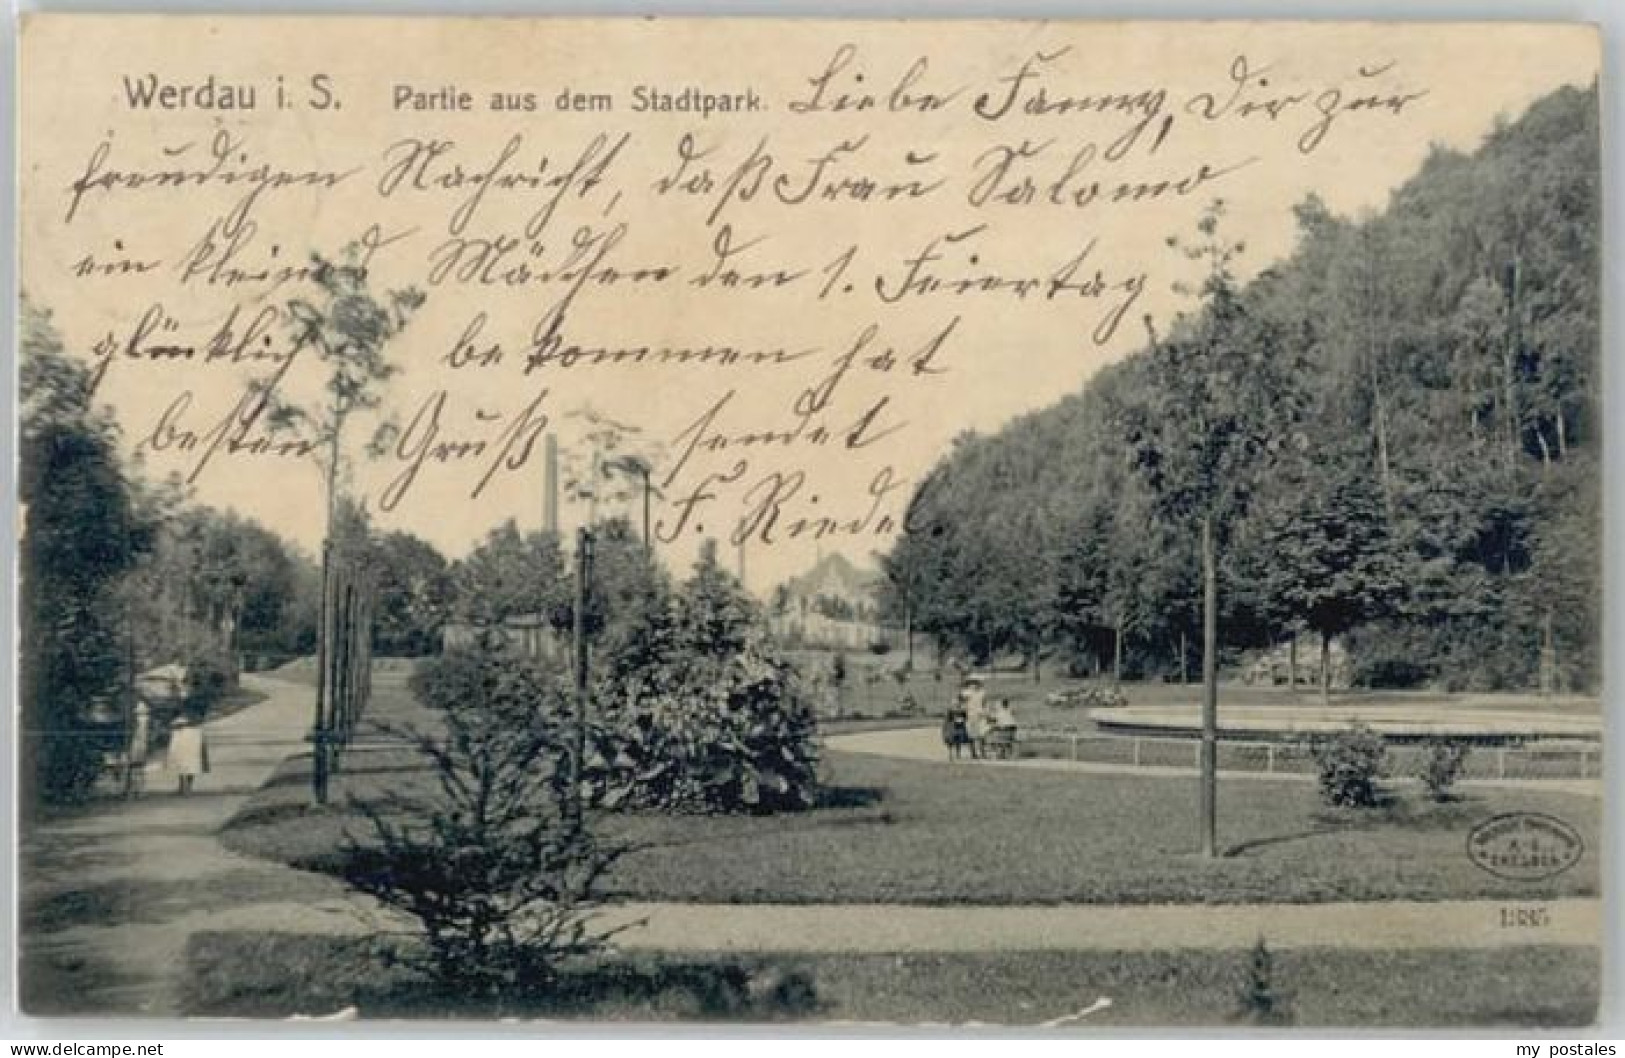 Werdau i. S. Partie aus dem Stadtpark. Liebe Fanny, Dir zur
freudigen Nachricht, daß Frau Salomo
ein kleines Mädchen den 1. Feiertag
glücklich bekommen hat
besten Gruß sendet
F. Riedel.
DRESDEN
my postales
delcampe.net